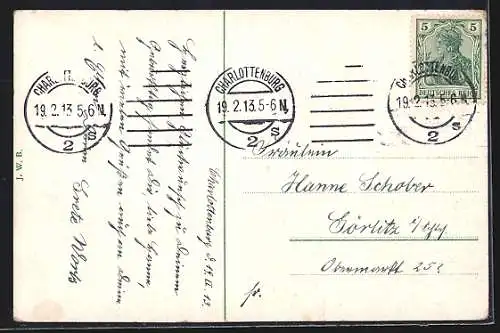 J. W. B.
Charlottenburg d. 19. II. 13
Herzlichen Glückwunsch zu Deinem
Geburtstag sendet Dir liebe Hanne,
mit vielen Grüßen
Grete
CHARLOTTENBURG
19.2.13.5-6N.
2 S
CHARLOTTENBURG
19.2.13.5-6N.
2 S
CHARLOTTENBURG
19.2.13.5-6N.
2 S
5 5
DEUTSCHES REICH
Fräulein
Hanne Schober
Görlitz
Obermarkt 25
fr.